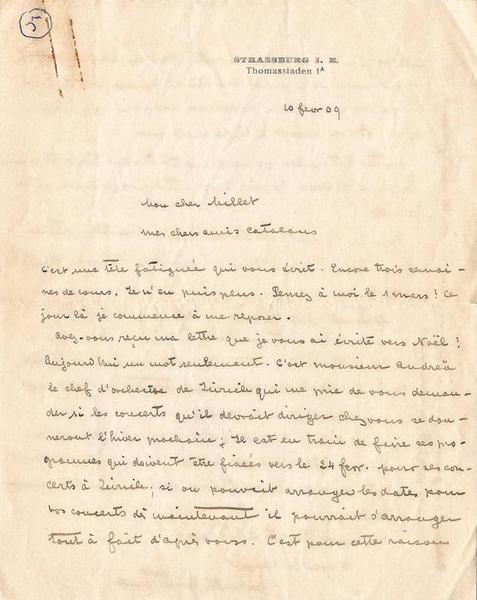 5
STRASSBURG I. E.
Thomasstaden 1ᴬ
10 fevr 09
Mon cher Millet
mes chers amis Catalans
C'est une tête fatiguée qui vous écrit. Encore trois semai-
nes de cours. Je n'en puis plus. Pensez à moi le 1 mars! Ce
jour là je commence à me reposer.
Avez-vous reçu ma lettre que je vous ai écrite vers Noël?
Aujourd'hui un mot seulement. C'est monsieur Andreä
le chef d'orchestre de Zürich qui me prie de vous deman-
der si les concerts qu'il devrait diriger chez vous se don-
neront l'hiver prochain; Il est en train de faire ses pro-
grammes qui doivent être fixées vers le 24 fevr. pour ses con-
certs à Zürich; si on pouvait arranger les dates pour
vos concerts dès maintenant il pourrait s'arranger
tout à fait d'après vous. C'est pour cette raison